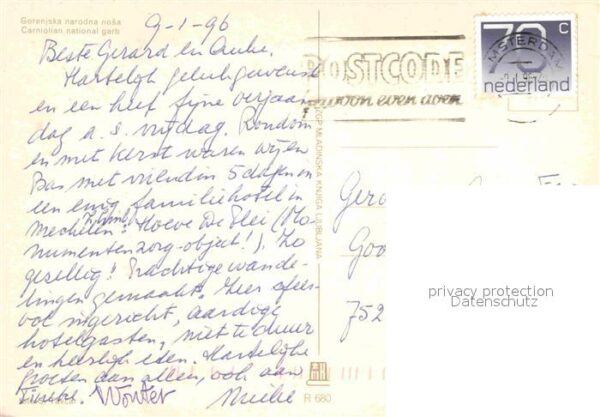 Gorenjska narodna noša
Carniolan national garb
9-1-96
Beste Gerard en Anke.
Hartelijk gefeliciteerd
en een heel fijne verjaar
dag a.s. vrijdag. Rondom
en met Kerst waren wij en
Bas met vriendin 5 dagen in
een enig familiehotel in
Mechelen. Hoeve De Plei (Mo-
numentenzorg-object!). Zo
gezellig! Prachtige wande-
lingen gemaakt. Zeer sfeer-
vol ingericht, aardige
hotelgasten, niet te duur
en heerlijk eten. Hartelijke
groeten aan allen, ook aan
Wouter
R 680
ZGP MLADINSKA KNJIGA LJUBLJANA
POSTCODE
gewoon even doen
AMSTERDAM
70 c
nederland
Gera
Goo
752
privacy protection
Datenschutz